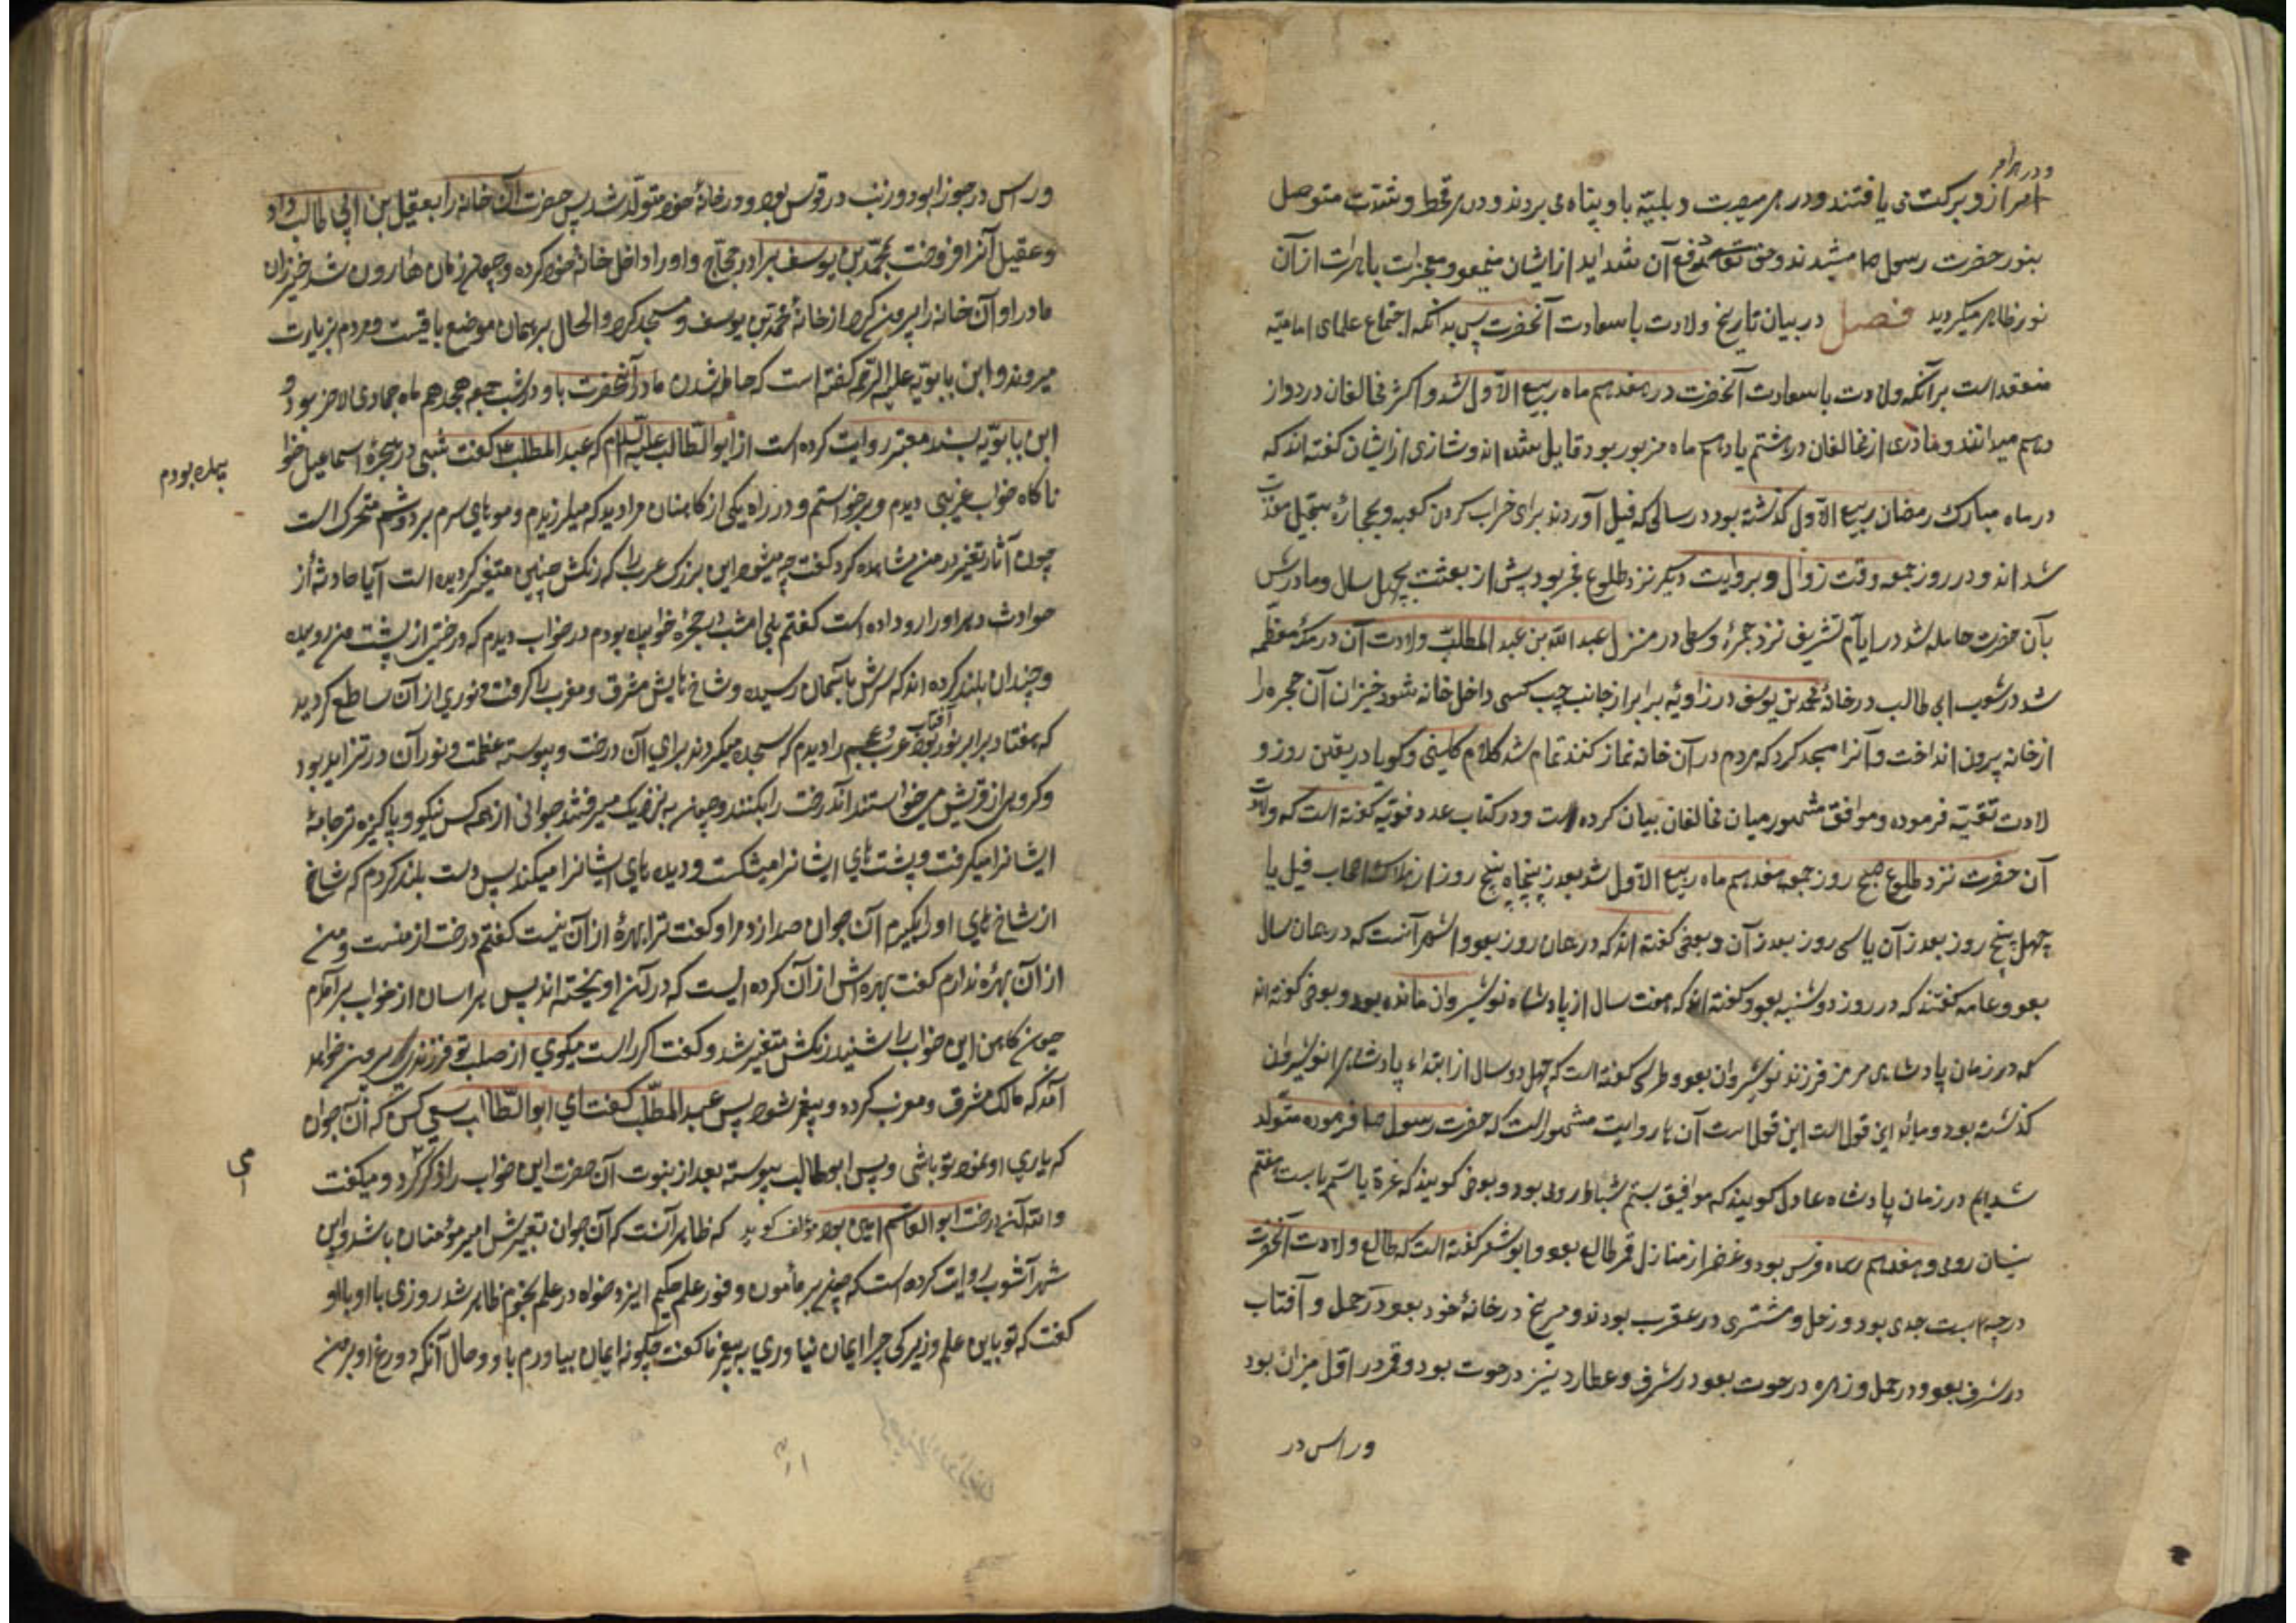 ودر هر امر
امر از و برکت می یافتند ودر هر مصیبت و بلیّه باو پناه می بردند ودر هر قحط و شدّت متوصل
بنور حضرت رسول ص میشدند وحق تعالی دفع آن شداید از ایشان مینمود ومعجزات باهرات از آن
نور ظاهر میگردید فصل در بیان تاریخ ولادت با سعادت آنحضرت پس بدانکه اجماع علمای امامیّه
منعقد است برآنکه ولادت با سعادت آنحضرت در هفدهم ماه ربیع الاوّل شد و اکثر مخالفان در دواز
دهم میدانند و از مخالفان در هشتم یا دهم ماه مزبور بود قایل شده اند و شاذی از ایشان گفته اند که
در ماه مبارک رمضان ربیع الاوّل گذشته بود در سالی که فیل آوردند برای خراب کردن کعبه و بحجاره سجّیل معذب
شده اند و در روز جمعه وقت زوال و بروایت دیگر نزد طلوع فجر بود پیش از بعثت بچهل سال ومادرش
بآن حضرت حامله شد در ایّام تشریف نزد جمرهٔ وسطی در منزل عبد الله بن عبد المطلّب و ولادت آن در مکّهٔ معظّمه
شد در شعب ابی طالب در خانهٔ محمد بن یوسف در زاویهٔ برابر از جانب چپ کسی داخل خانه شود خیزران آن حجره را
از خانه بیرون انداخت و آنرا مسجد کرد که مردم در آن خانه نماز کنند تمام شد کلام کلینی و گویا در یقین روز و
لادت تقیّه فرموده و موافق مشهور میان مخالفان بیان کرده است و در کتاب عدد قویّه گفته است که ولادت
آن حضرت نزد طلوع صبح روز جمعه هفدهم ماه ربیع الاوّل شد بعد از پنجاه پنج روز از هلاک اصحاب فیل یا
چهل پنج روز بعد از آن یا سی روز بعد از آن و بعضی گفته اند که در همان روز بود و اشهر آنست که در همان سال
بود و عامه گفتند که در روز دوشنبه بود و گفته اند که هفت سال از پادشاه نوشیروان مانده بود و بعضی گفته اند
که در زمان پادشاهی هرمز فرزند نوشیروان بود و طبری گفته است که چهل دو سال از ابتداء پادشاهی انوشیروان
گذشته بود و این قول است آن روایت مشهور است که حضرت رسول ص فرموده متولّد
شدیم در زمان پادشاه عادل گویند که موافق بیستم شباط رومی بود و بعضی گویند که غرّهٔ یا بیست هفتم
نیسان رومی و هفدهم دیماه فرس بود و غفر از منازل قمر طالع بود و ابو معشر گفته است که طالع ولادت آنحضرت
درجهٔ بیست جدی بود و زحل و مشتری در عقرب بودند و مرّیخ در خانهٔ خود بود در حمل و آفتاب
در شرف بود و در حمل و زهره در حوت بود در شرف و عطارد نیز در حوت بود و قمر در اوّل میزان بود
وراس در
وراس در جوزا بود و زنب در قوس بود و در خانهٔ خود متولّد شد پس حضرت آن خانه را بعقیل بن ابی طالب داد
وعقیل آنرا فروخت بمحمّد بن یوسف برادر حجّاج واو را داخل خانهٔ خود کرده و چون زمان هارون شد خیزران
مادر او آن خانه را بیرون کرد از خانهٔ محمّد بن یوسف و مسجد کرد والحال بر همان موضع باقیست و مردم بزیارت
میروند و ابن بابویّه علیه الرحمه گفته است که حامل شدن مادر آنحضرت باو در شب جمعه هجدهم ماه جمادی الاخر بود و
ابن بابویّه بسند معتبر روایت کرده است از ابو الطّالب علیه السّلام که عبد المطّلب ع گفت شبی در حجرهٔ اسماعیل خوا
بیده بودم
ناگاه خواب غریبی دیدم و برخواستم و در راه یکی از کاهنان مرا دید که میلرزیدم و موهای سرم بر دوشم متحرک است
چون آثار تغیر در من مشاهده کرد گفت چه میشود این بزرگ عرب را که رنگش چنین متغیر گردیده است آیا حادثهٔ از
حوادث دهر او را رو داده است گفتم بلی امشب در حجره خوابیده بودم در خواب دیدم که درختی از پشت من روییده
و چندان بلند کرده اند که سرش باسمان رسیده و شاخ هایش مشرق و مغرب را گرفت و نوری از آن ساطع گردید
که هفتاد برابر نور آفتاب بود و عرب و عجم را دیدم که سجده میکردند برای آن درخت و پیوسته عظمت و نور آن در تزاید بود
و گروهی از قریش میخواستند آندرخت را بکنند و چون بنزدیک میرفتند جوانی از همه کس نیکو و پاکیزه تر جامهٔ
ایشانرا میگرفت و پشت های ایشانرا میشکست و دیده های ایشانرا میکند پس دست بلند کردم که شاخ
از شاخ های او را بگیرم آن جوان صدا زد مرا و گفت ترا بهرهٔ از آن نیست گفتم درخت از منست و من
از آن بهرهٔ ندارم گفت بهره اش از آن گروه ایست که در آن آویخته اند پس هراسان از خواب برآمدم
چون کاهن این خواب را شنید رنگش متغیر شد و گفت اگر راست میگوی از صلب تو فرزندی بیرون خواهد
آمد که مالک مشرق و مغرب کرده و پیغمبر شود پس عبد المطّلب گفت ای ابو الطّالب سعی کن که آن جوان
که یاری او نمود تو باشی و پس ابوطالب پیوسته بعد از نبوت آن حضرت این خواب را ذکر کرد و میگفت
می
والله آن درخت ابو القاسم امین بود مؤلف گوید که ظاهر آنست که آن جوان تعبیرش امیر مؤمنان باشد و ابن
شهر آشوب روایت کرده است که چون بر مأمون وفور علم حکیم ایزد خواه در علم نجوم ظاهر شد روزی با او با او
گفت که تو باین علم و زیرکی چرا ایمان نیاوری به پیغمبر ما گفت چگونه ایمان بیاورم باو و حال آنکه دروغ او بر من